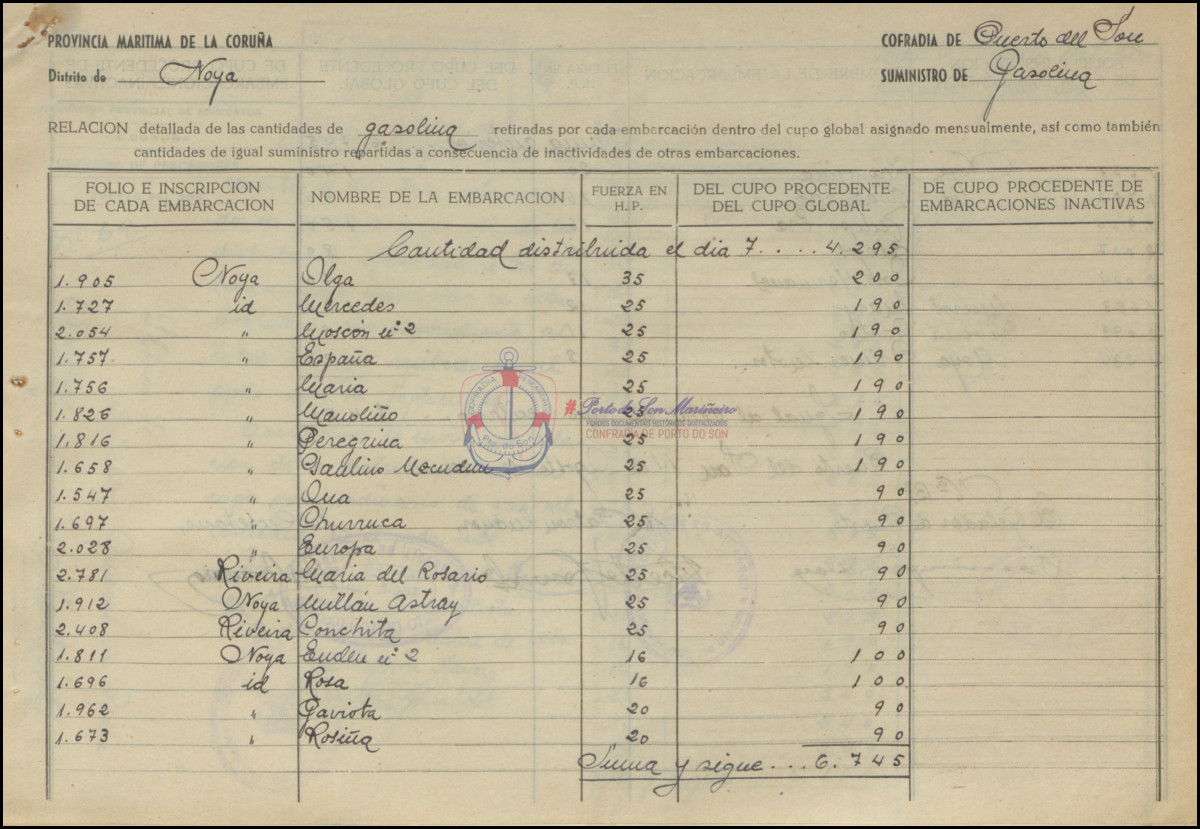 PROVINCIA MARITIMA DE LA CORUÑA
COFRADIA DE Puerto del Son
Distrito de Noya
SUMINISTRO DE Gasolina
RELACION detallada de las cantidades de gasolina retiradas por cada embarcación dentro del cupo global asignado mensualmente, así como también
cantidades de igual suministro repartidas a consecuencia de inactividades de otras embarcaciones.
FOLIO E INSCRIPCION DE CADA EMBARCACION
NOMBRE DE LA EMBARCACION
FUERZA EN H. P.
DEL CUPO PROCEDENTE DEL CUPO GLOBAL
DE CUPO PROCEDENTE DE EMBARCACIONES INACTIVAS
Cantidad distribuida el dia 7 . . . . 4.295
1.905 Noya Olga 35 200
1.727 id Mercedes 25 190
2.054 " Moscón nº 2 25 190
1.757 " España 25 190
1.756 " Maria 25 190
1.826 " Manoliño 25 190
1.816 " Peregrina 25 190
1.658 " Paulino 25 190
1.547 " 25 90
1.697 " Churruca 25 90
2.028 " Europa 25 90
2.781 Riveira Maria del Rosario 25 90
1.912 Noya Millán Astray 25 90
2.408 Riveira Conchita 25 90
1.811 Noya nº 2 16 100
1.696 id Rosa 16 100
1.962 " Gaviota 20 90
1.673 " Rosiña 20 90
Suma y sigue . . . 6.745
COFRADIA PESCADORES
Pto. do Son
# Porto do Son Mariñeiro
FONDOS DOCUMENTAIS HISTÓRICOS DIXITALIZADOS
CONFRARÍA DE PORTO DO SON